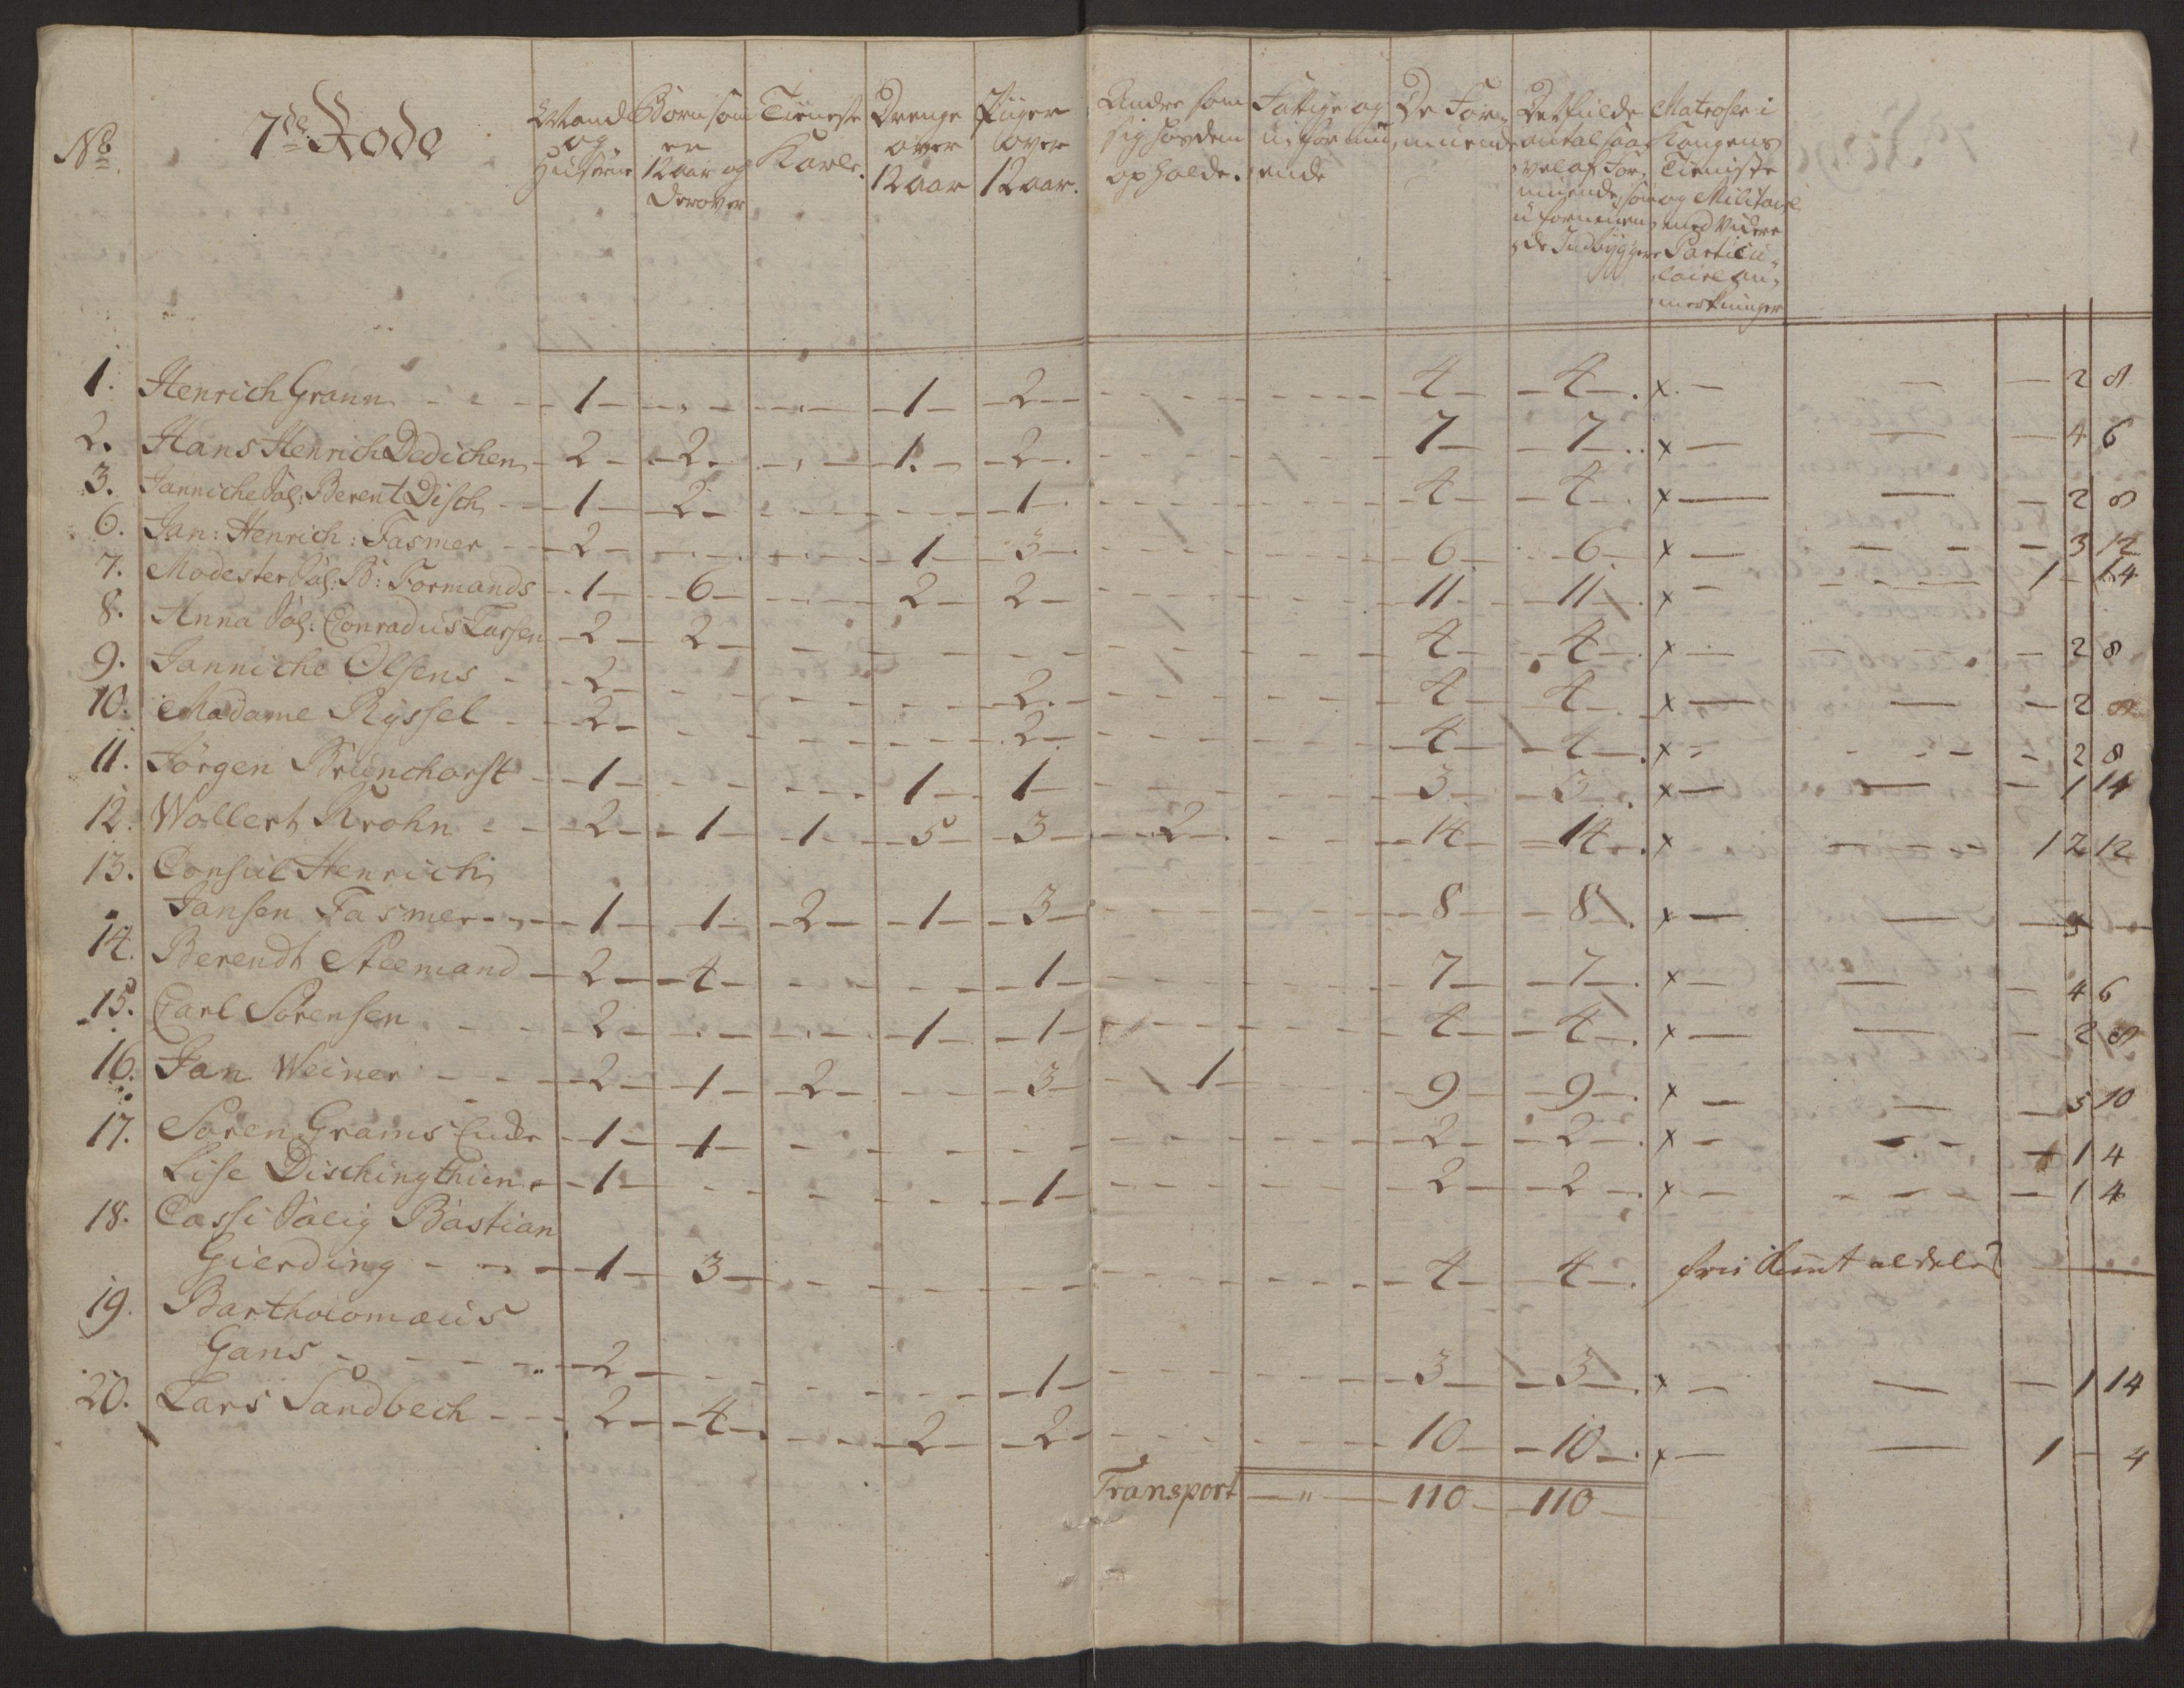 No 7de Rode
Mand og Hustrue | Børn som er 12 aar og derover | Tieneste Karle. | Drenge over 12 aar | Piiger over 12 aar. | Andre som sig hos dem opholde. | Fattige og uformuende | De Formuende | Det fulde antal saavel af Formuende, som uformuende Indbyggere | Matroser i Kongens Tieniste og Militaire med videre Particulaire anmerkninger
1. Henrich Grann - - - 1 - - - 1 - 2 - - - 4 - 4 -. x - - - 2 8
2. Hans Henrich Dedichen - 2 - 2 - - 1. - 2 - - - 7 - 7 -. x - - - 4 6
3. Janniche Sal: Berent Disch - 1 - 2 - - - 1 - - - 4 - 4 -. x - - - 2 8
6. Jan: Henrich: Fasmer - 2 - - - 1 - 3 - - - 6 - 6 - x - - - 3 12
7. Modester Sal: B: Formands - 1 - 6 - - 2 - 2 - - - 11 - 11 - x - - - 1 - 14
8. Anna Sal: Conradus Larsen - 2 - 2 - - - - - - 4 - 4 -. x - - - 2 8
9. Janniche Olsens - - 2 - - - - 2. - - - 4 - 4 -. x - - - 2 8
10. Madame Ryssel - - 2 - - - - 2 - - - 4 - 4 -. x - - - 2 8
11. Jørgen Brunchorst - 1 - - - 1 - 1 - - - 3 - 3 -. x - - - 1 14
12. Wollert Krohn - - 2 - 1 - 1 - 5 - 3 - 2 - - 14 - 14 -. x - - - 1 2 12
13. Consul Henrich
Jansen Fasmer - - 1 - 1 - 2 - 1 - 3 - - - 8 - 8 -. x - - - 5 -
14. Berendt Steemand - 2 - 4 - - - 1 - - - 7 - 7 -. x - - - 4 6
15. Carl Sørensen - - 2 - - - 1 - 1 - - - 4 - 4 -. x - - - 2 8
16. Jan Weiner - - - 2 - 1 - 2 - - 3 - 1 - - 9 - 9 -. x - - - 5 10
17. Søren Grams Encke - 1 - 1 - - - - - - 2 - 2 -. x - - - 1 4
Lise Dischingthun - - 1 - - - - 1 - - - 2 - 2 -. x - - - 1 4
18. Cassi Salig Bastian
Gierding - - - 1 - 3 - - - - - - 4 - 4 -. frie aldeles
19. Bartholomæus
Gans - - - 2 - - - - 1 - - - 3 - 3 -. x - - - 1 14
20. Lars Sandbech - - 2 - 4 - - 2 - 2 - - - 10 - 10 -. x - - 1 - 4
Transport - " - 110 - 110 -